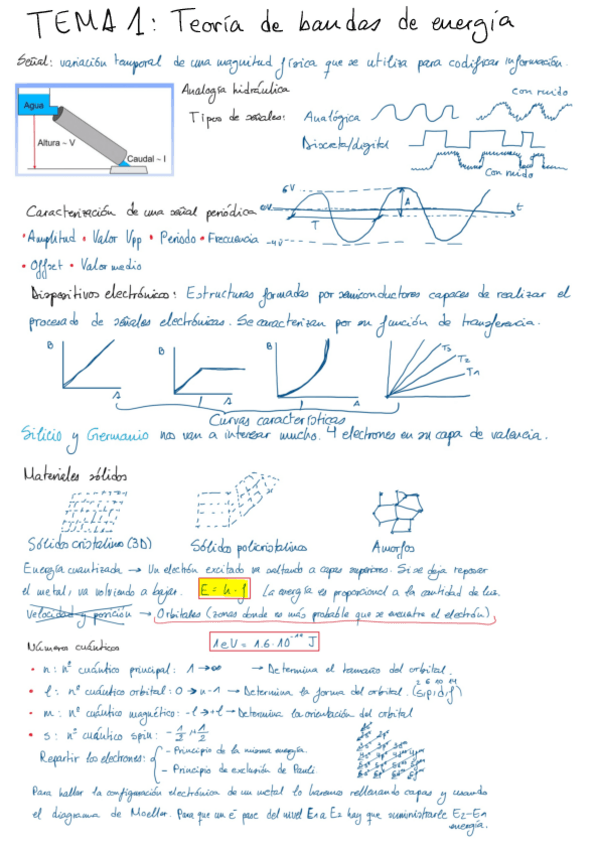 TEMA 1: Teoría de bandas de energía
Señal: variación temporal de una magnitud física que se utiliza para codificar información.
Agua
Altura ~ V
Caudal ~ I
Analogía hidráulica
con ruido
Tipos de señales: Analógica
Discreta/digital
con ruido
6V
Caracterización de una señal periódica
0V
A
t
T
-4V
• Amplitud • Valor Vpp • Periodo • Frecuencia
• Offset • Valor medio
Dispositivos electrónicos: Estructuras formadas por semiconductores capaces de realizar el
procesado de señales electrónicas. Se caracterizan por su función de transferencia.
B A
B A
B A
T3 T2 T1
Curvas características
Silicio y Germanio nos van a interesar mucho. 4 electrones en su capa de valencia.
Materiales sólidos
Sólidos cristalino (3D) Sólidos policristalinos Amorfos
Energía cuantizada → Un electrón excitado va saltando a capas superiores. Si se deja reposar
el metal, va volviendo a bajar. E = h · f La energía es proporcional a la cantidad de luz.
Velocidad y posición → Orbitales (zonas donde es más probable que se encuentre el electrón)
Números cuánticos
1eV = 1.6·10⁻¹⁹ J
• n: nº cuántico principal: 1 → ∞ → Determina el tamaño del orbital.
• l: nº cuántico orbital: 0 → n-1 → Determina la forma del orbital. (s,p,d,f)
2 6 10 14
• m: nº cuántico magnético: -l → +l → Determina la orientación del orbital
• s: nº cuántico spin:
Repartir los electrones: - Principio de la mínima energía.
- Principio de exclusión de Pauli.
Para hallar la configuración electrónica de un metal lo haremos rellenando capas y usando
el diagrama de Moeller. Para que un e⁻ pase del nivel E1 a E2 hay que suministrarle E2-E1
energía.